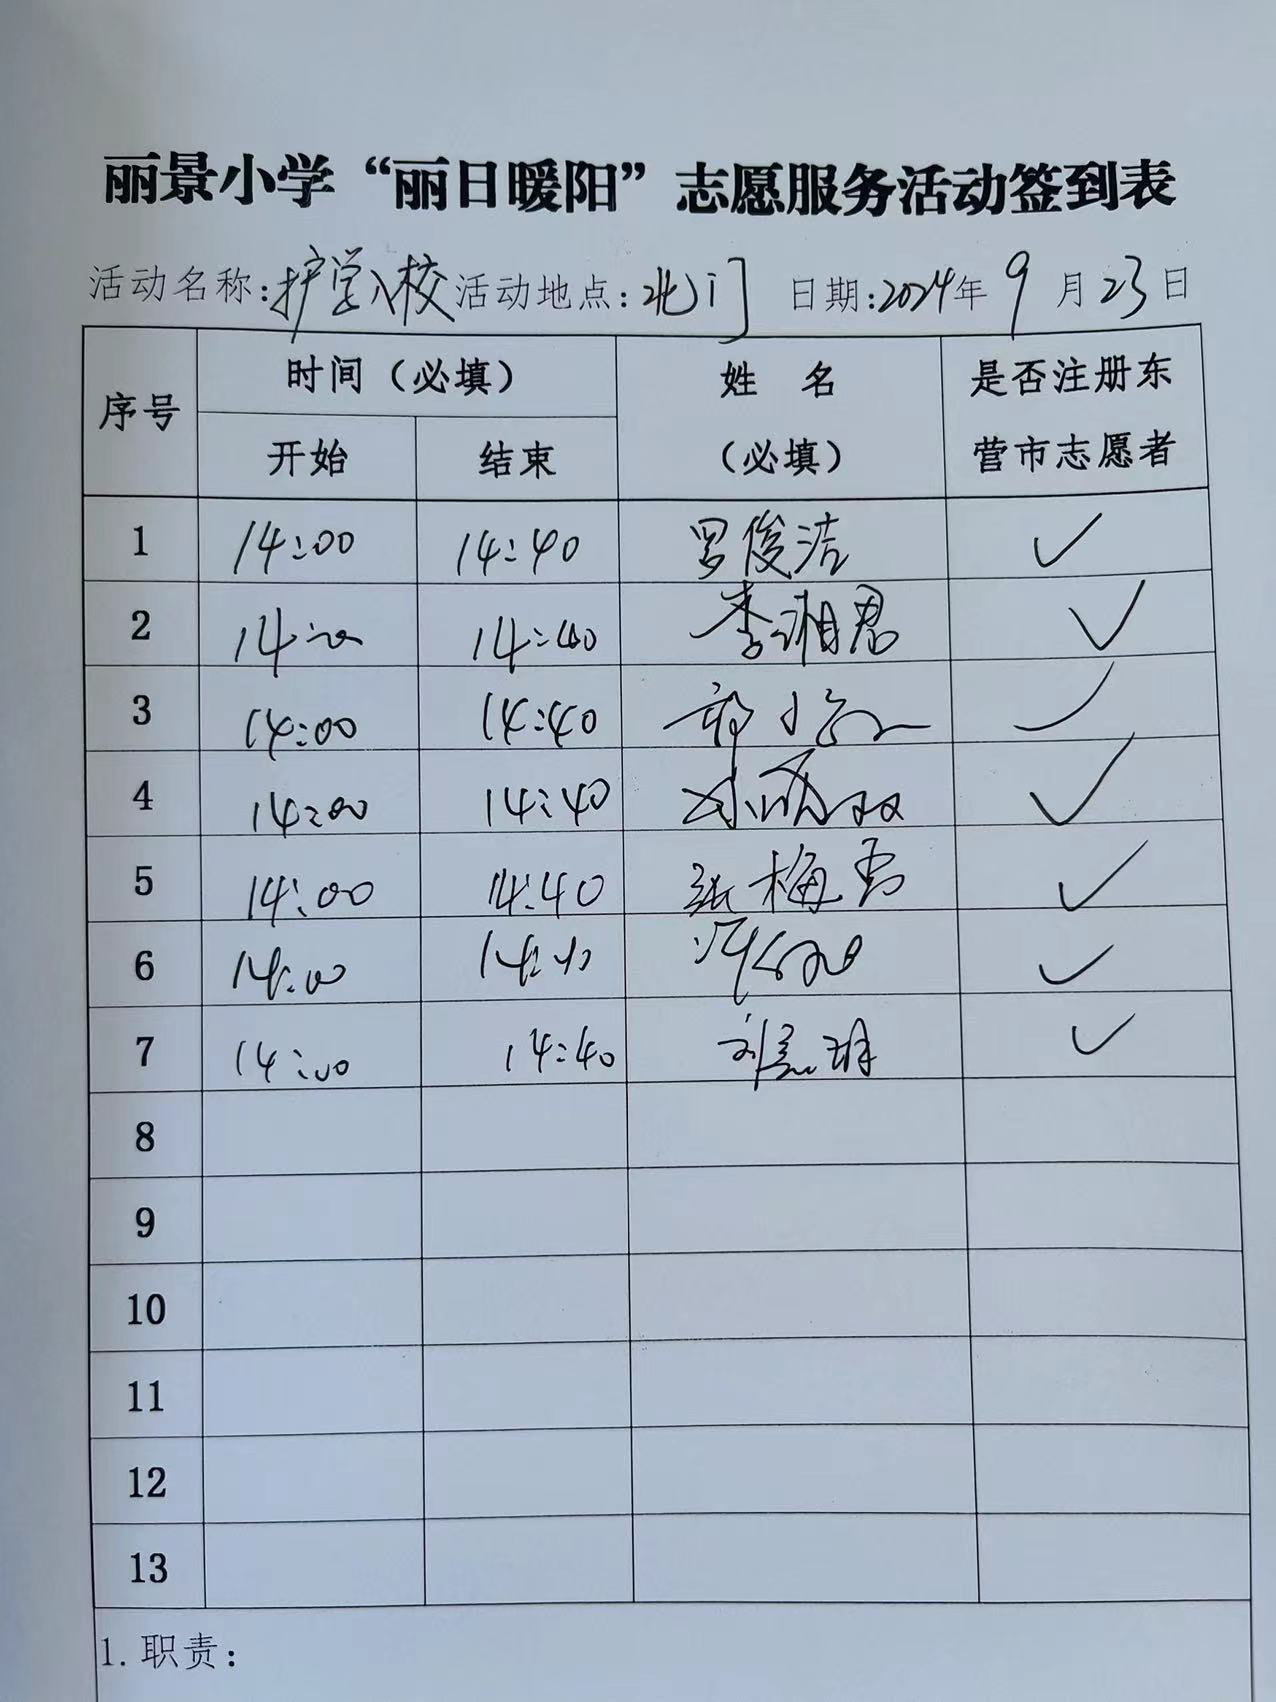 丽景小学“丽日暖阳”志愿服务活动签到表
活动名称:护学入校 活动地点:北门 日期:2024年9月23日
序号 时间（必填） 姓 名 是否注册东
开始 结束 （必填） 营市志愿者
1 14:00 14:40 罗俊洁 ✓
2 14:00 14:40 李湘君 ✓
3 14:00 14:40 ✓
4 14:00 14:40 ✓
5 14:00 14:40 张梅 ✓
6 14:00 14:40 ✓
7 14:00 14:40 ✓
8
9
10
11
12
13
1.职责：